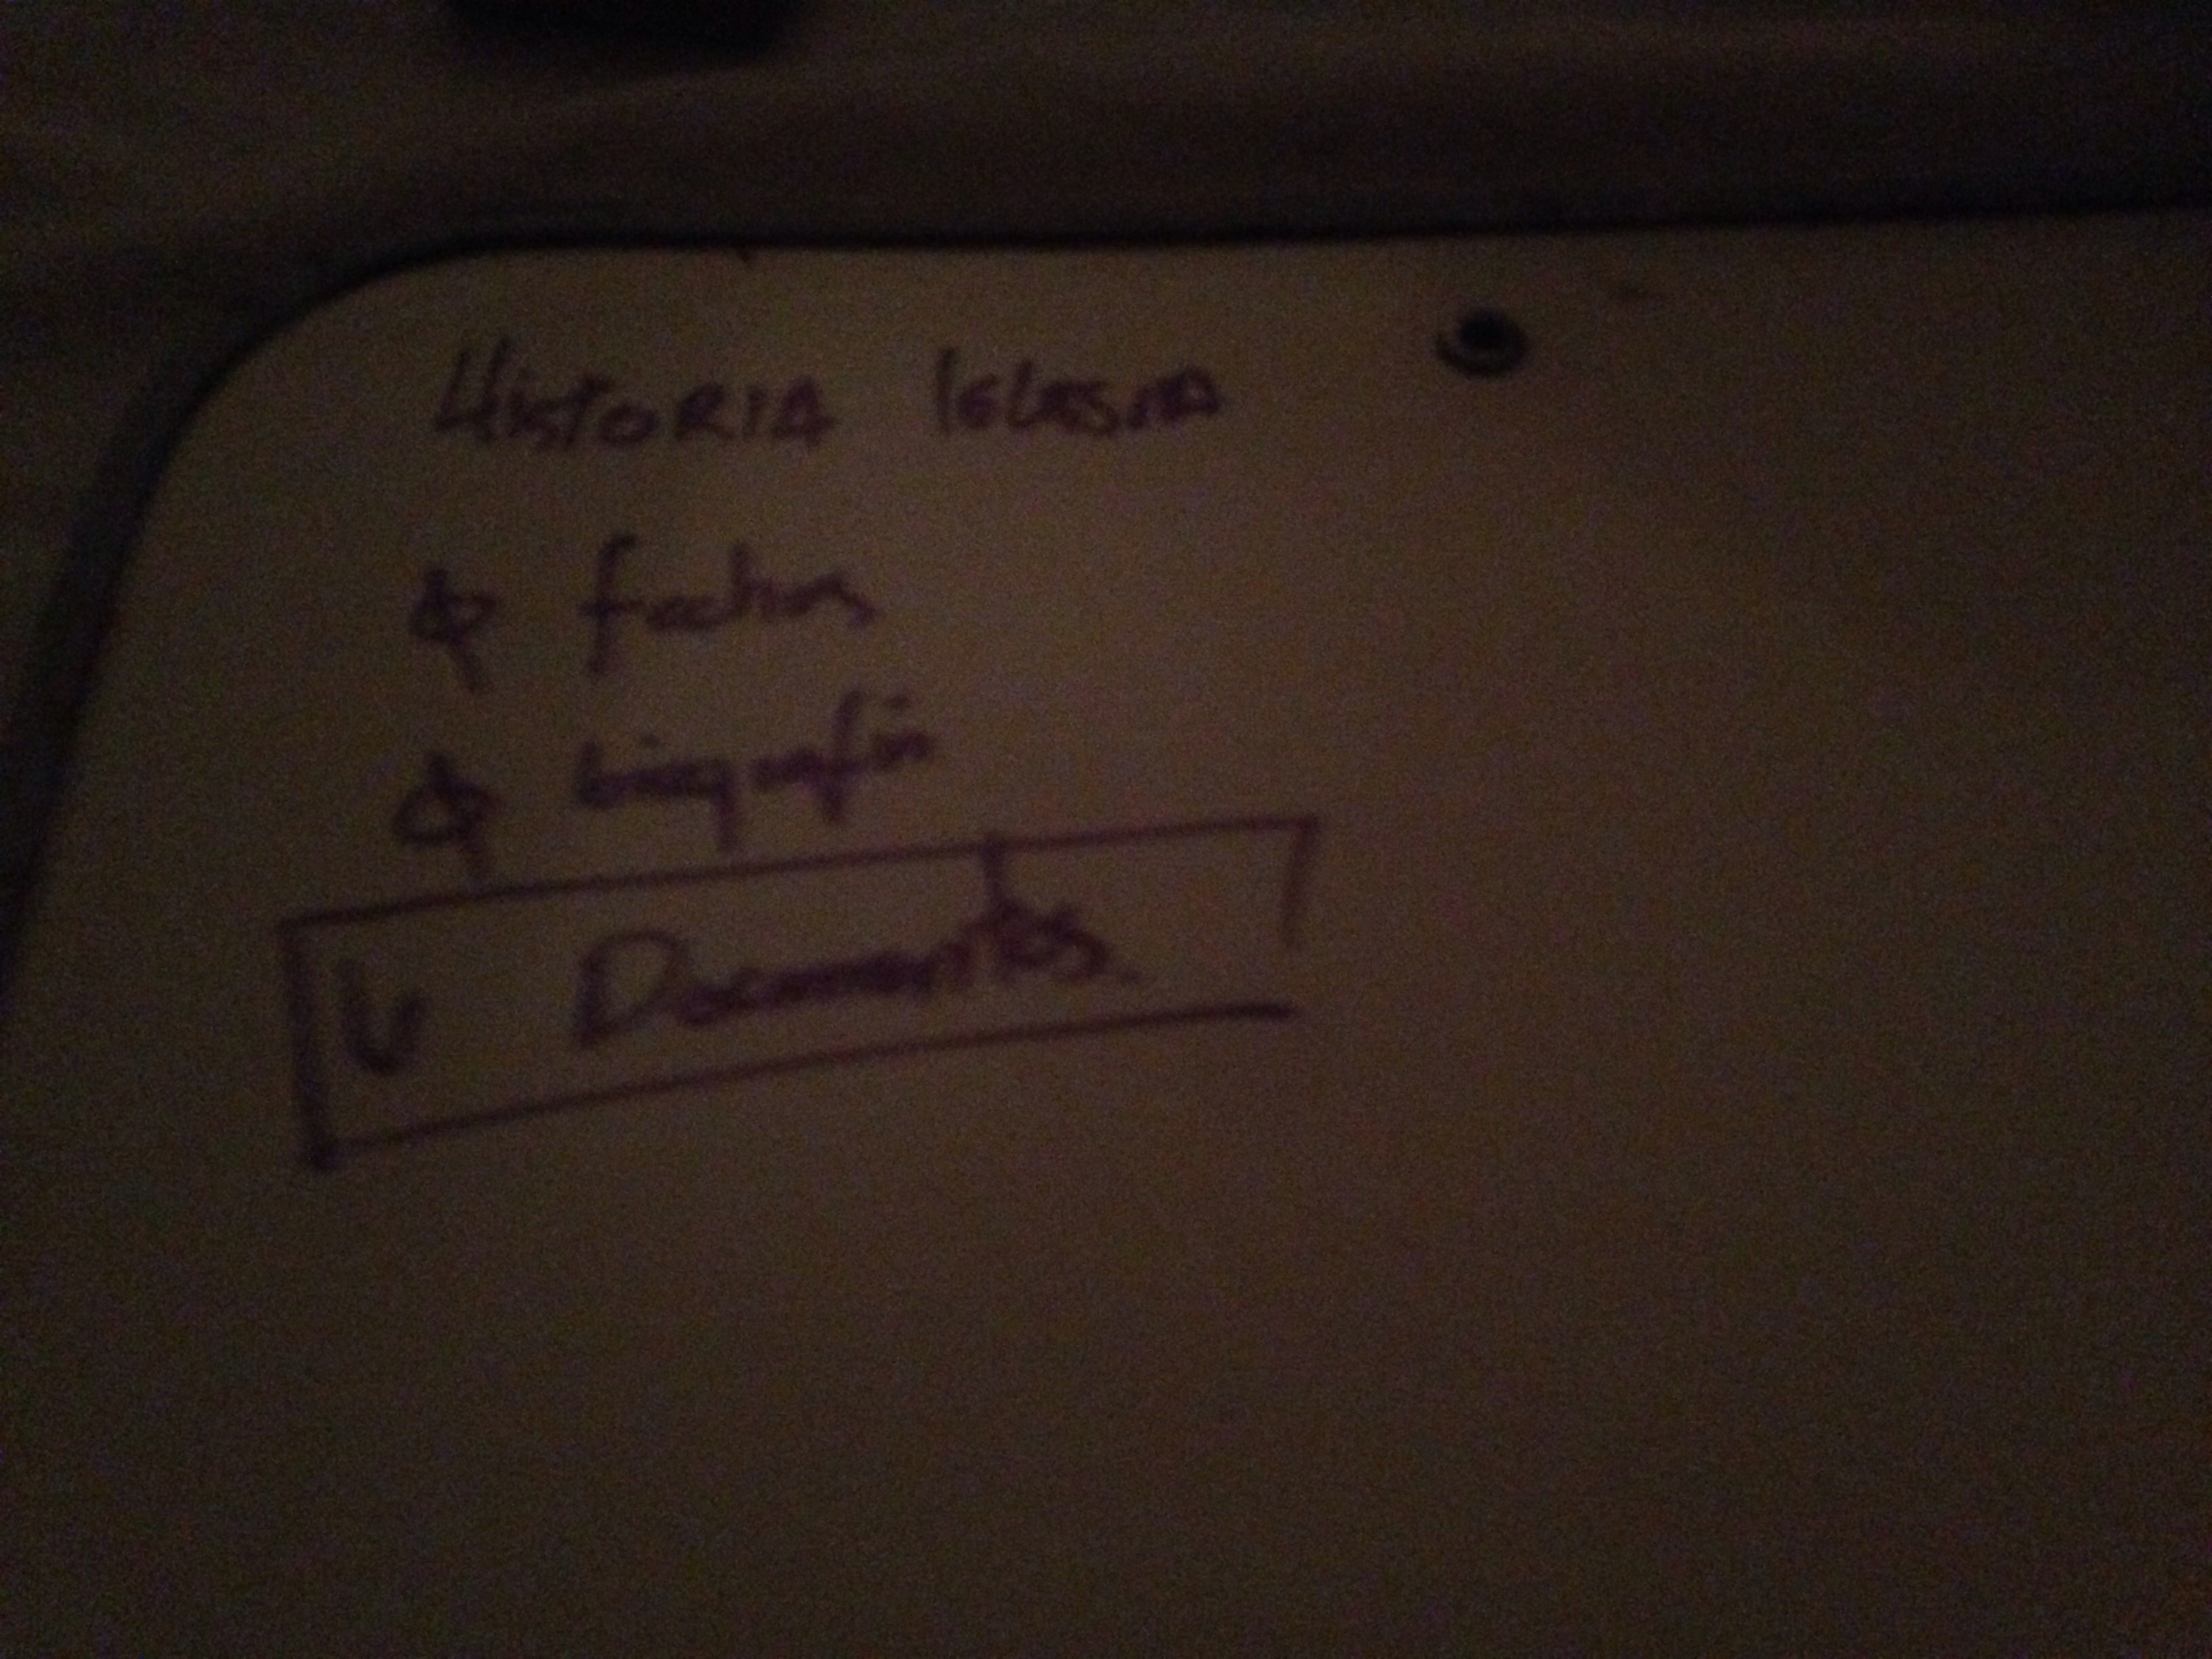 HISTORIA IGLESIA
φ fechas
φ biografía
Documentos